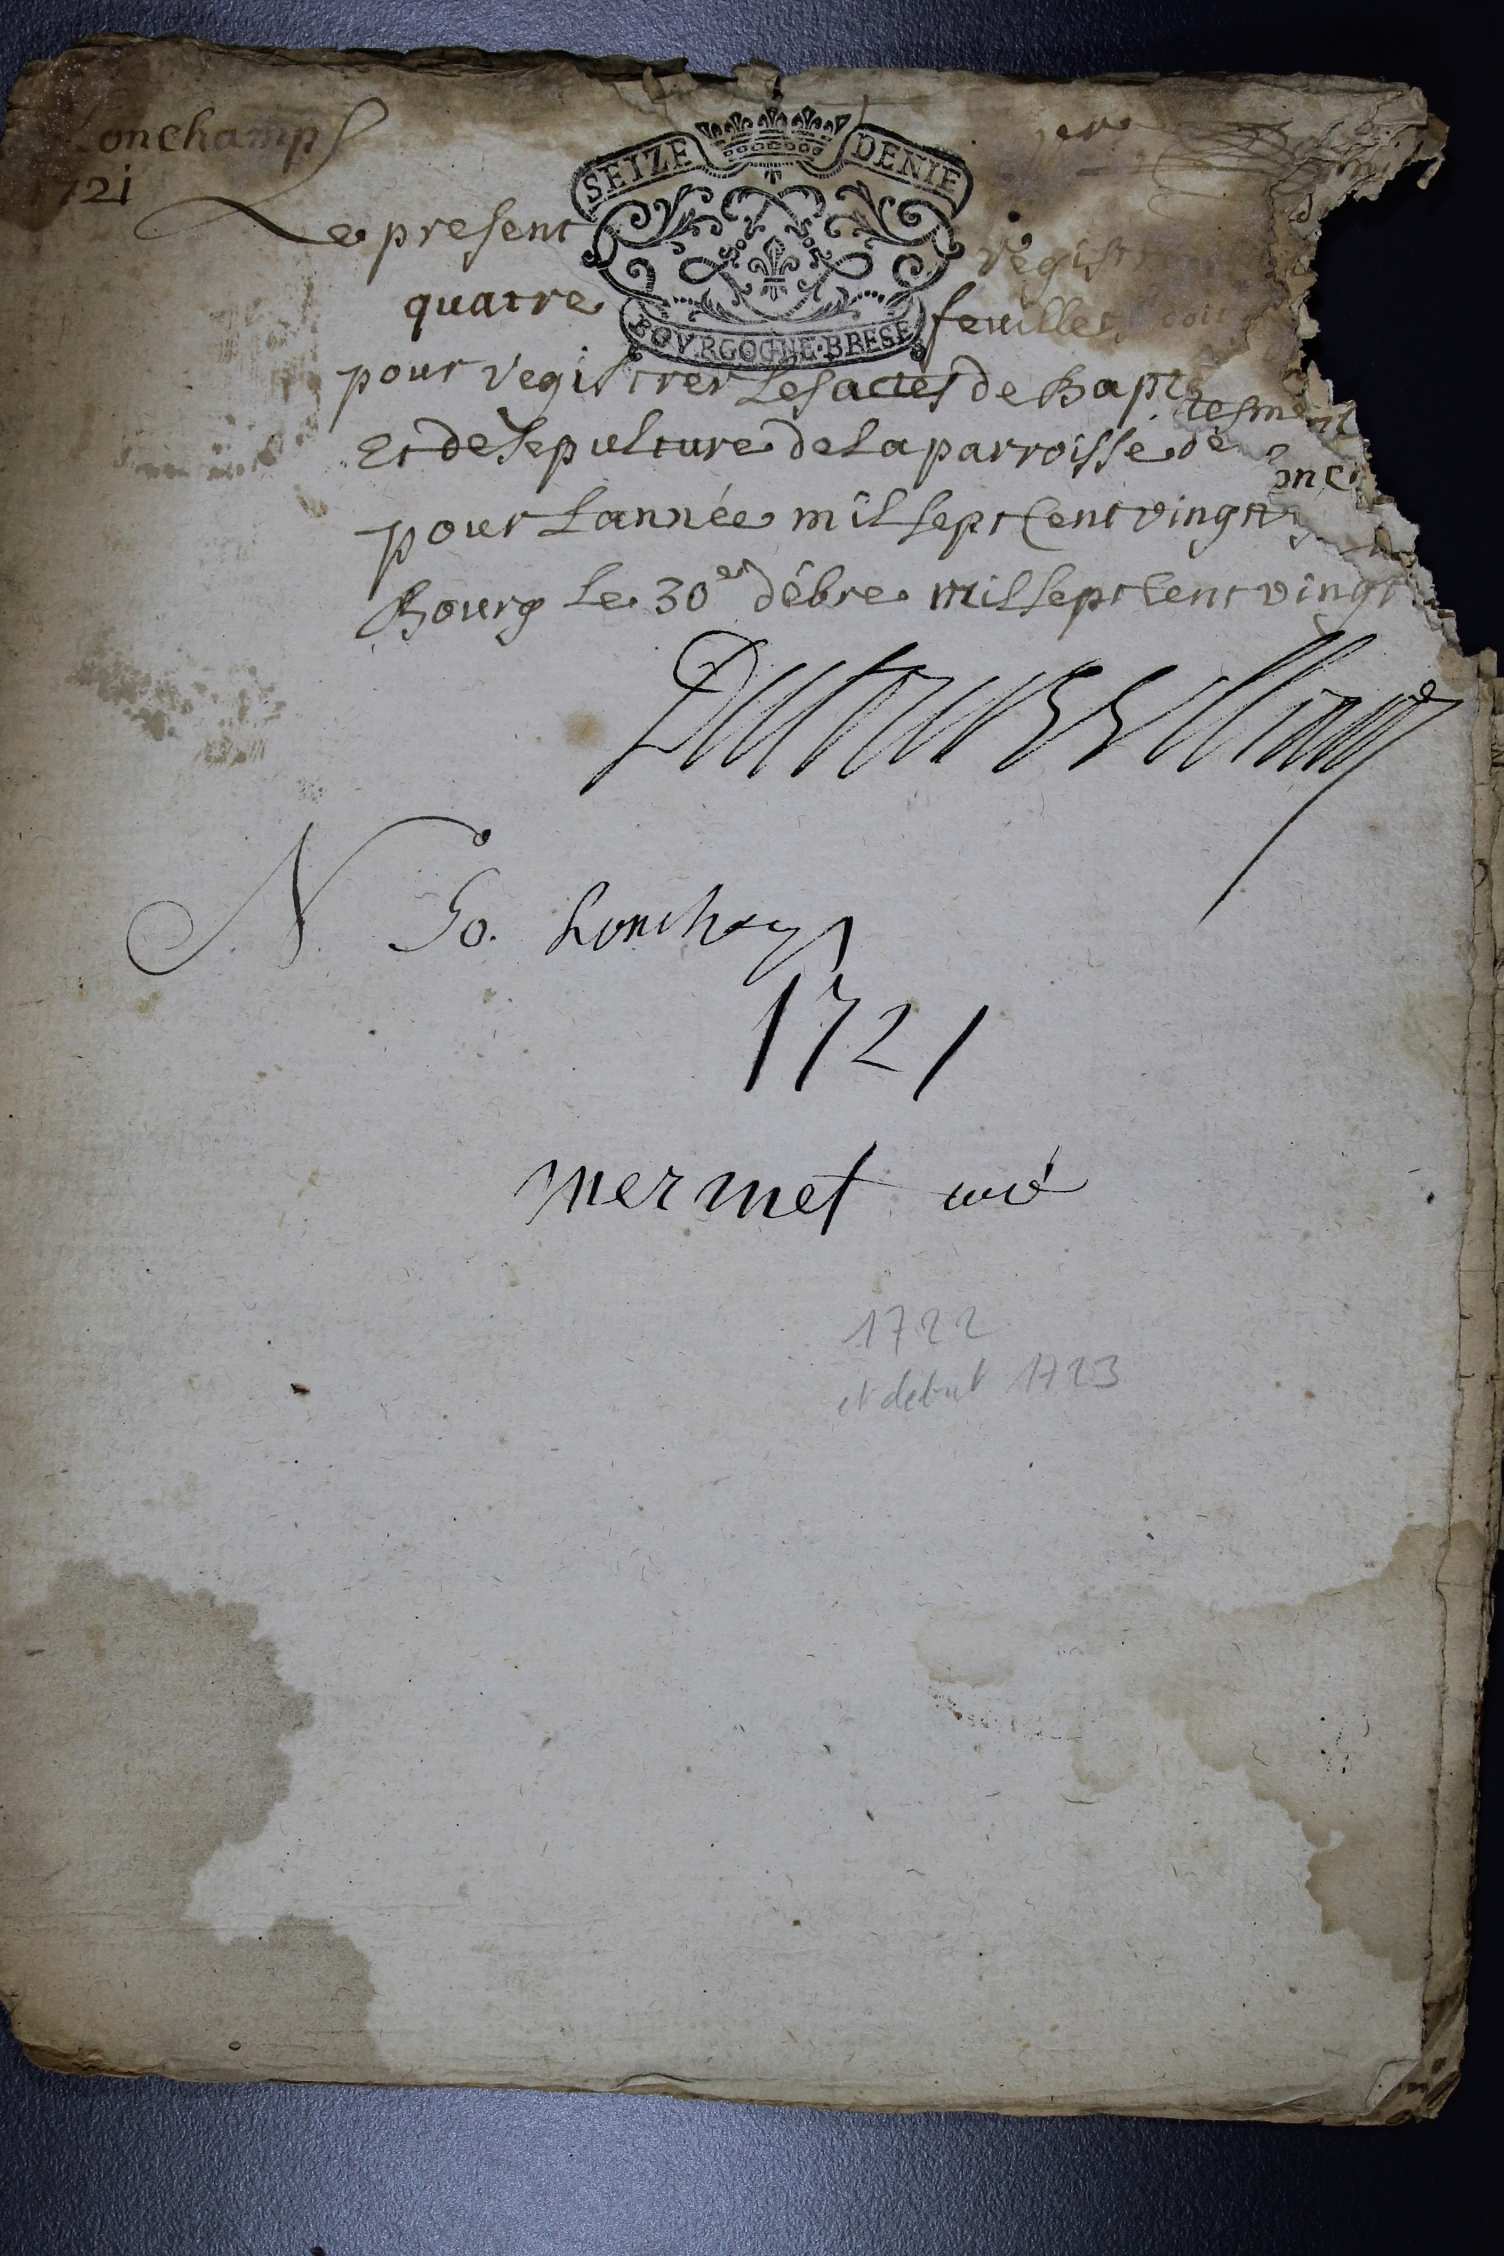 Lonchamps
1721
SEIZE DENIE
Le present registre
quatre feuillet
BOVRGOGNE·BRESE
pour registrer Les actes de Baptesme
Et de sepulture de La parroisse de Lonc
pour Lannée mil sept Cent vingt
Bourg Le 30e débre mil sept Cent vingt
N 50. Lonchamp
1721
mermet curé
1722
et debut 1723